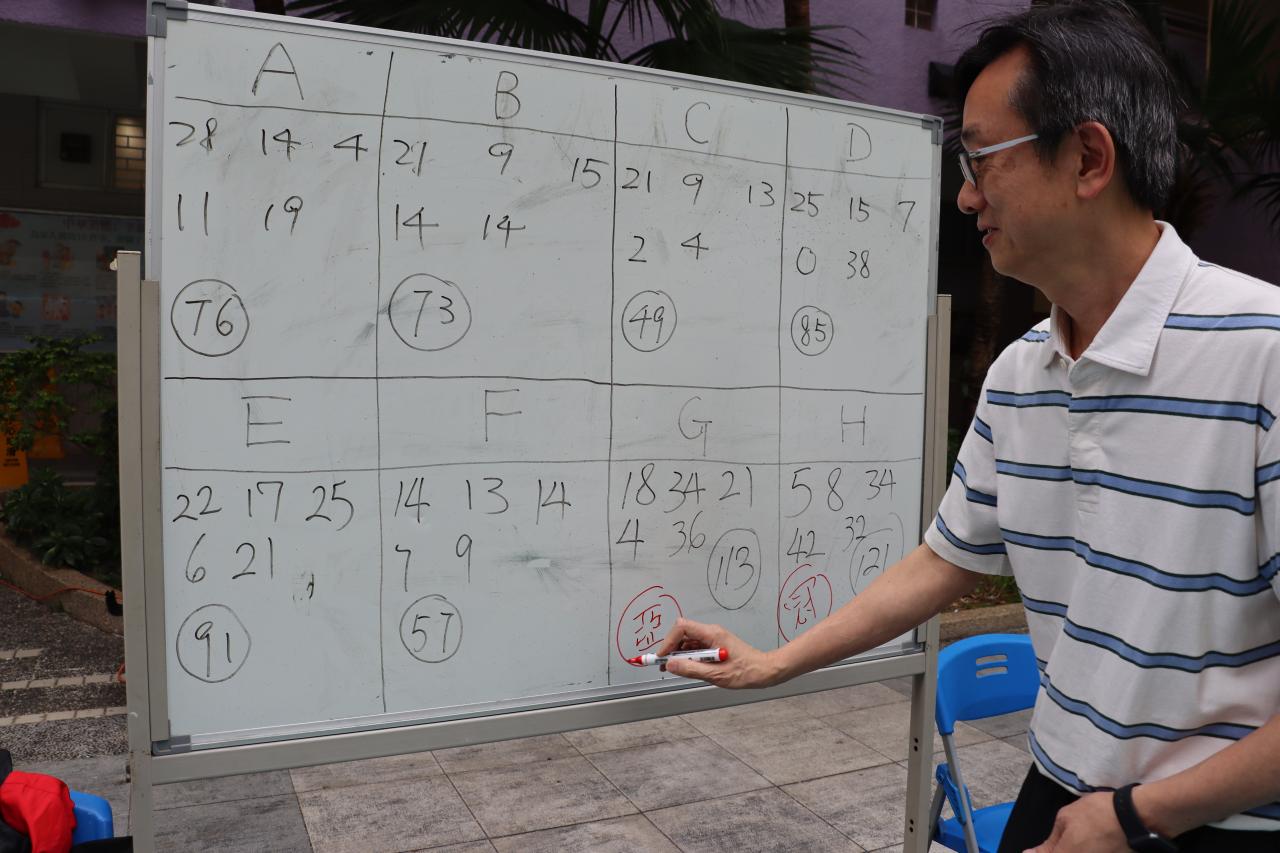 A
28 14 4
11 19
76
B
21 9 15
14 14
73
C
21 9 13
2 4
49
D
25 15 7
0 38
85
E
22 17 25
6 21
91
F
14 13 14
7 9
57
G
18 34 21
4 36
113
亞
H
5 8 34
42 32
121
冠